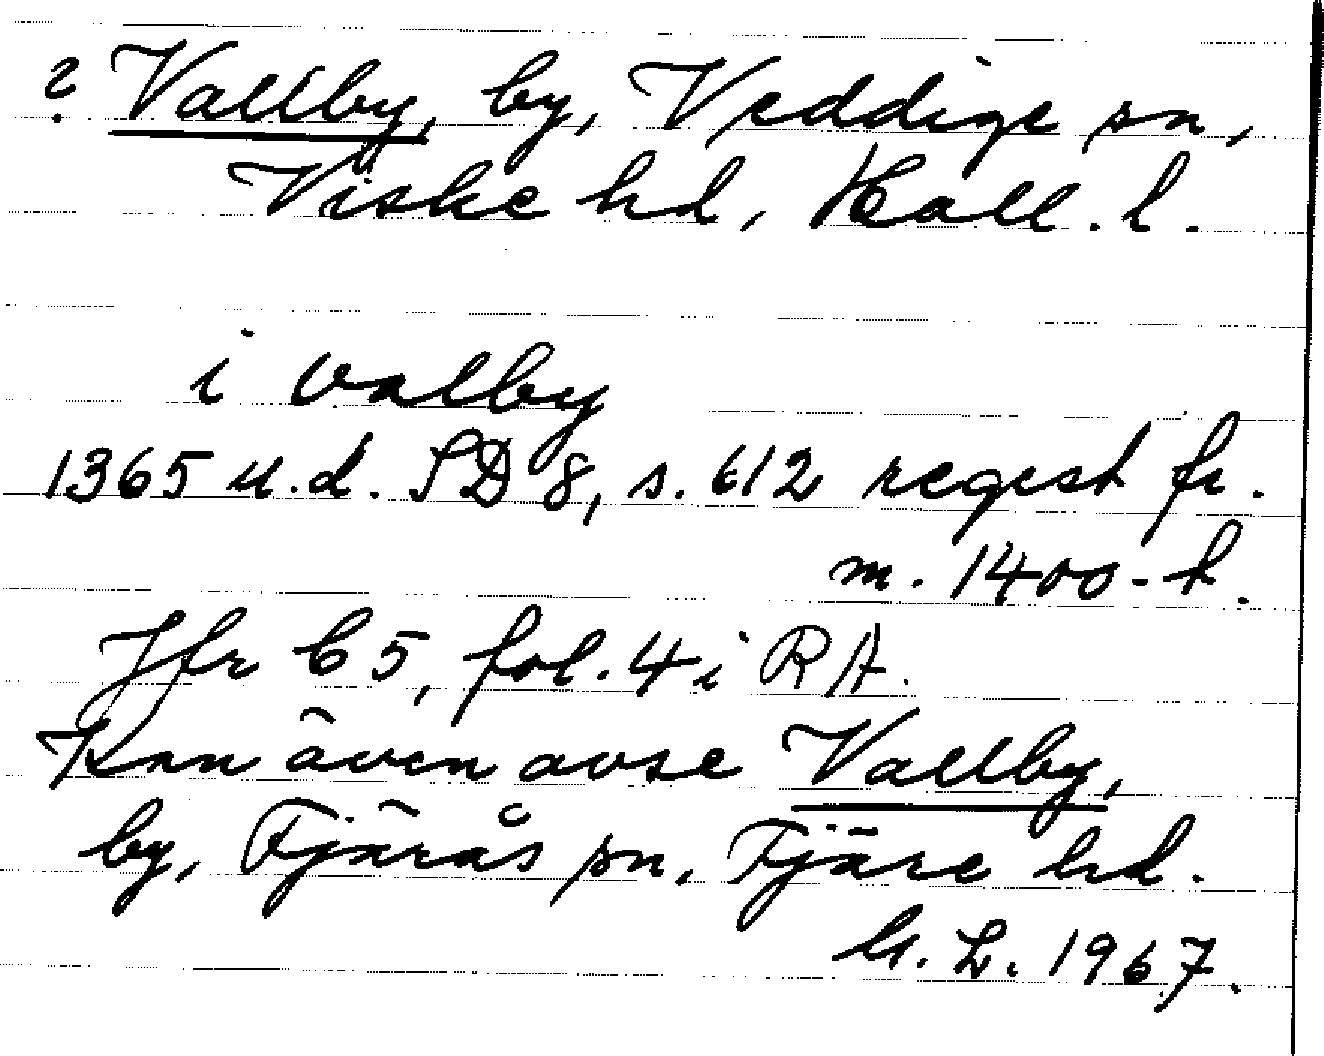 ? Vallby, by, Veddige sn,
Viske hd, Hall. l.
i valby
1365 u.d. SD 8, s. 612 regest fr.
m. 1400-t.
Jfr C 5, fol. 4 i RA.
Kan även avse Vallby,
by, Fjärås sn, Fjäre hd.
G. L. 1967.